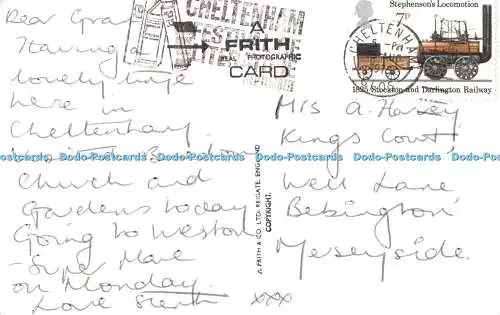 Dear Gran
Having a
lovely time
here in
Cheltenham.
Church and
Gardens today
Going to Weston
- Super Mare
on Monday.
Love
xxx
CHELTENHAM
A
FRITH
REAL PHOTOGRAPHIC
CARD
© FRITH & CO. LTD. REIGATE, ENGLAND
COPYRIGHT.
Stephenson's Locomotion
7p
CHELTENHAM
PM
1825 Stockton and Darlington Railway
Mrs A. Harvey
Kings Court
Well Lane
Bebington
Merseyside.
Dodo-Postcards Dodo-Postcards Dodo-Postcards Dodo-Postcards Dodo-Postcards